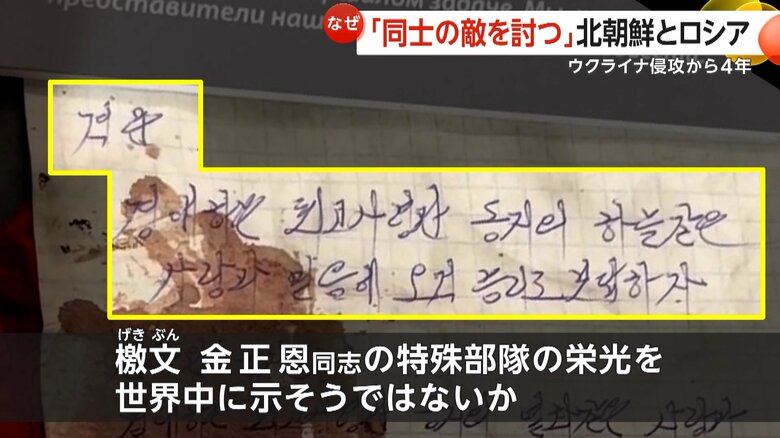 представители наш
なぜ
「同士の敵を討つ」北朝鮮とロシア
ウクライナ侵攻から4年
격문
경애하는 최고사령관 동지의 하늘같은
사랑과 믿음에 오직 승리로 보답하자
げき ぶん
檄文 金正恩同志の特殊部隊の栄光を
世界中に示そうではないか